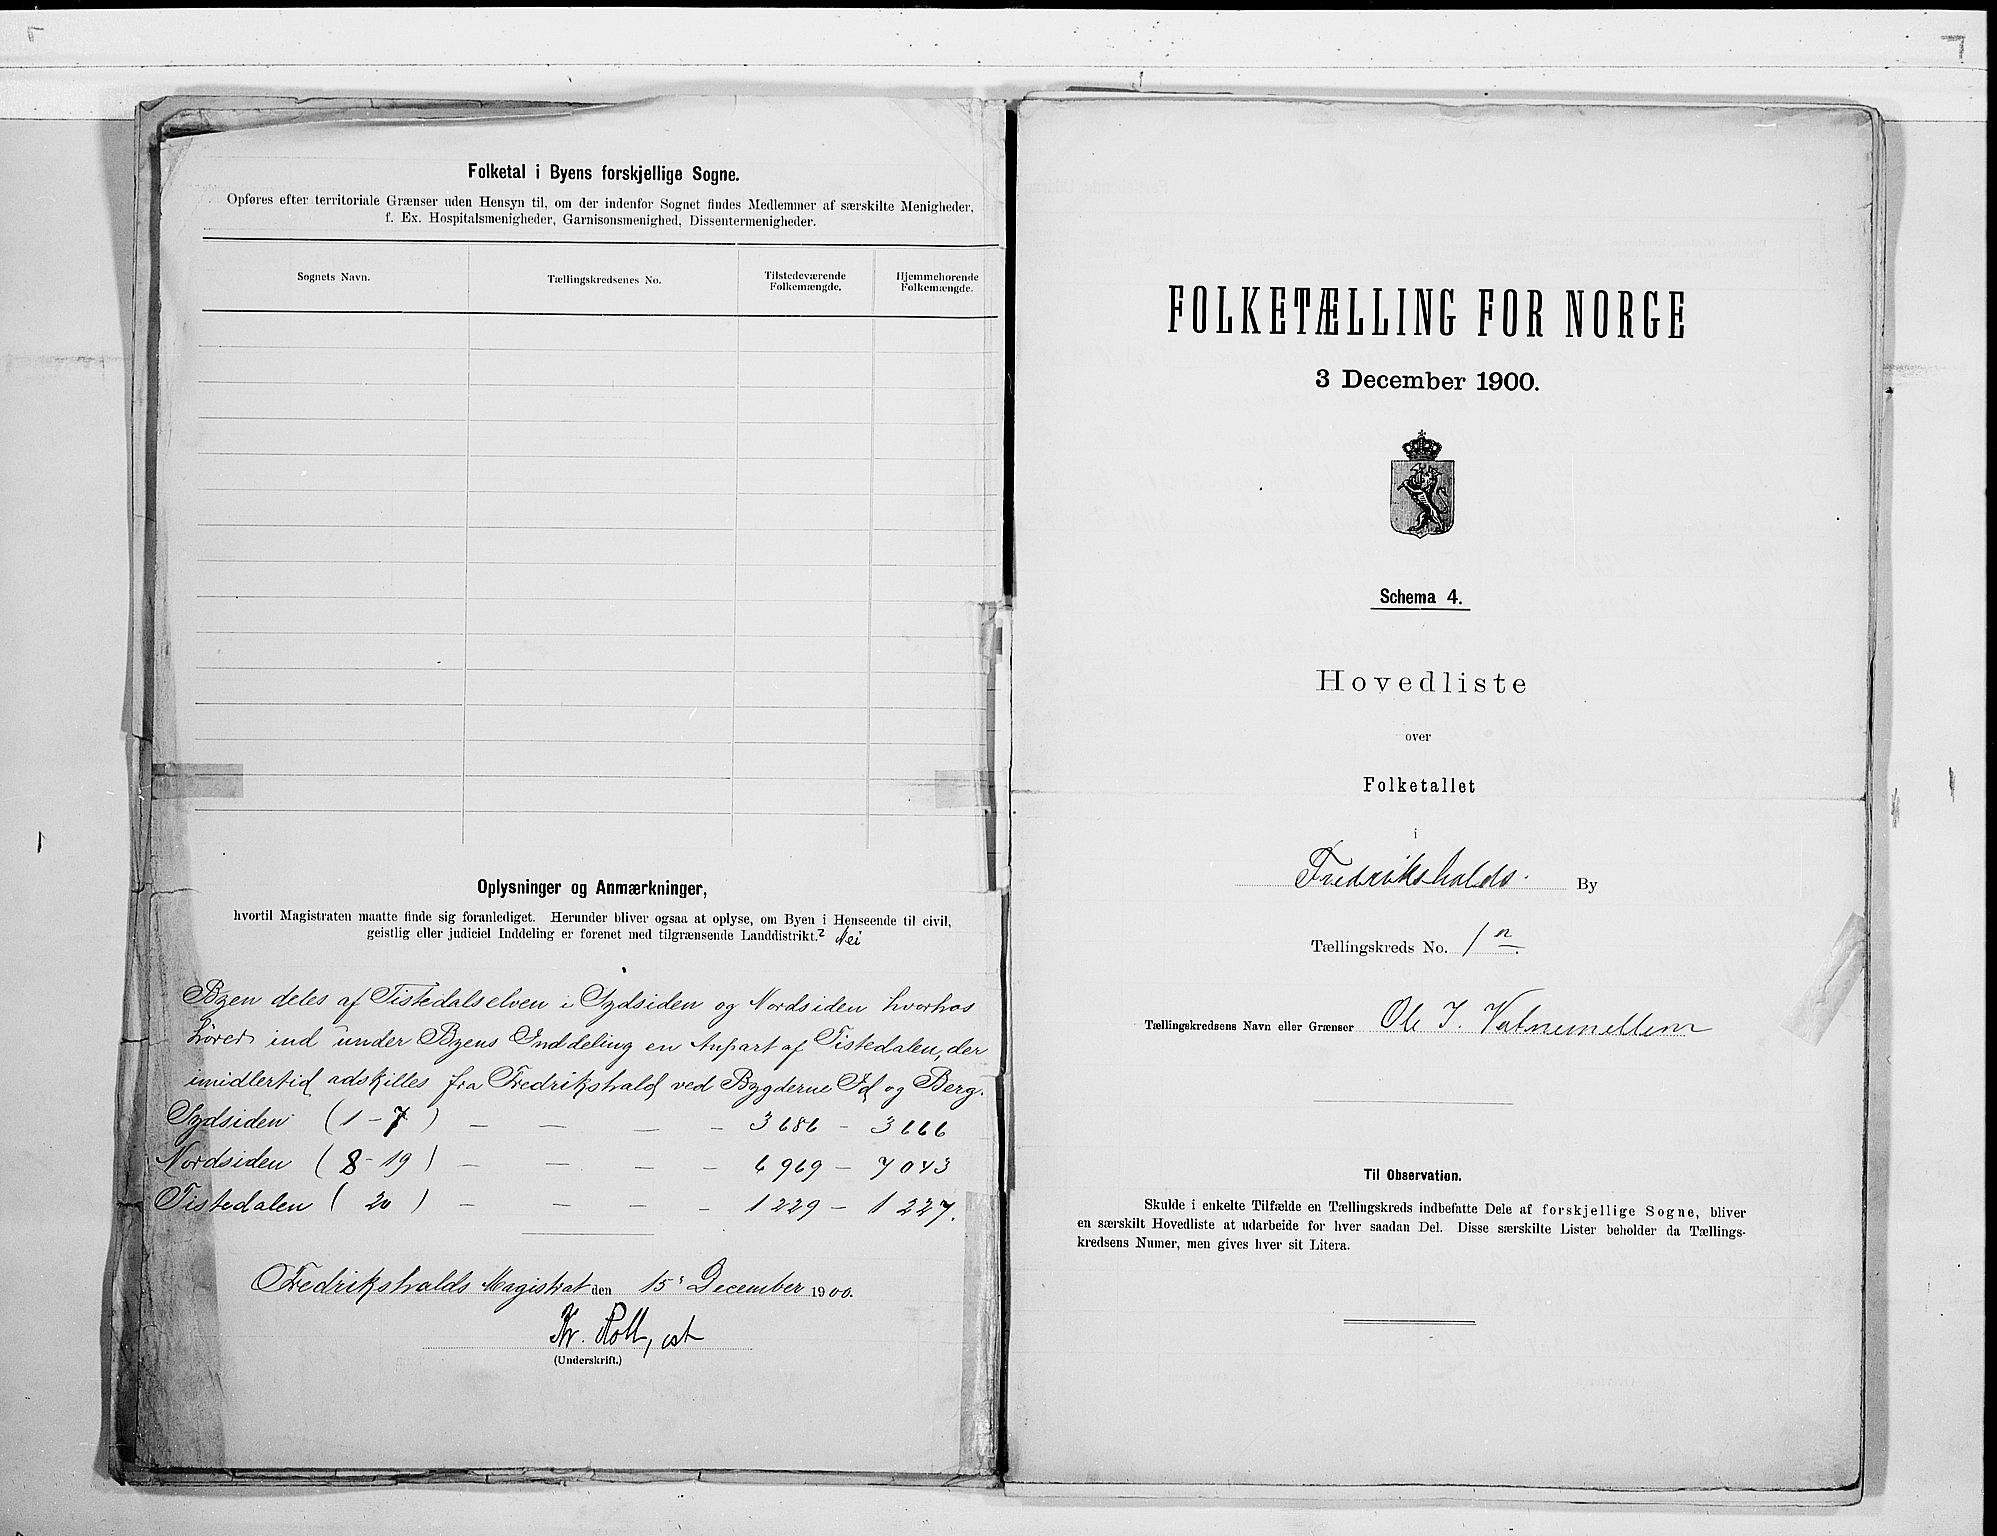 Folketal i Byens forskjellige Sogne.
Opføres efter territoriale Grænser uden Hensyn til, om der indenfor Sognet findes Medlemmer af særskilte Menigheder,
f. Ex. Hospitalsmenigheder, Garnisonsmenighed, Dissentermenigheder.
Sognets Navn. Tællingskredsenes No. Tilstedeværende Folkemængde. Hjemmehørende Folkemængde.
Oplysninger og Anmærkninger,
hvortil Magistraten maatte finde sig foranlediget. Herunder bliver ogsaa at oplyse, om Byen i Henseende til civil,
geistlig eller judiciel Inddeling er forenet med tilgrænsende Landdistrikt.? Nei
Byen deles af Tistedalselven i Sydsiden og Nordsiden hvorhos
hører ind under Byens Inddeling en Anpart af Tistedalen, der
imidlertid adskilles fra Fredrikshald ved Bygderne Id og Berg.
Sydsiden (1-7) — — — — 3686 — 3666
Nordsiden (8-19) — — — — 6969 — 7043
Tistedalen (20) — — — — 1229 — 1227.
Fredrikshalds Magistrat den 15 December 1900.
Kr. Roll, cst
(Underskrift.)
FOLKETÆLLING FOR NORGE
3 December 1900.
Schema 4.
Hovedliste
over
Folketallet
i
Fredrikshalds By
Tællingskreds No. 1
Tællingskredsens Navn eller Grænser Ole J.
Til Observation.
Skulde i enkelte Tilfælde en Tællingskreds indbefatte Dele af forskjellige Sogne, bliver
en særskilt Hovedliste at udarbeide for hver saadan Del. Disse særskilte Lister beholder da Tællings-
kredsens Numer, men gives hver sit Litera.